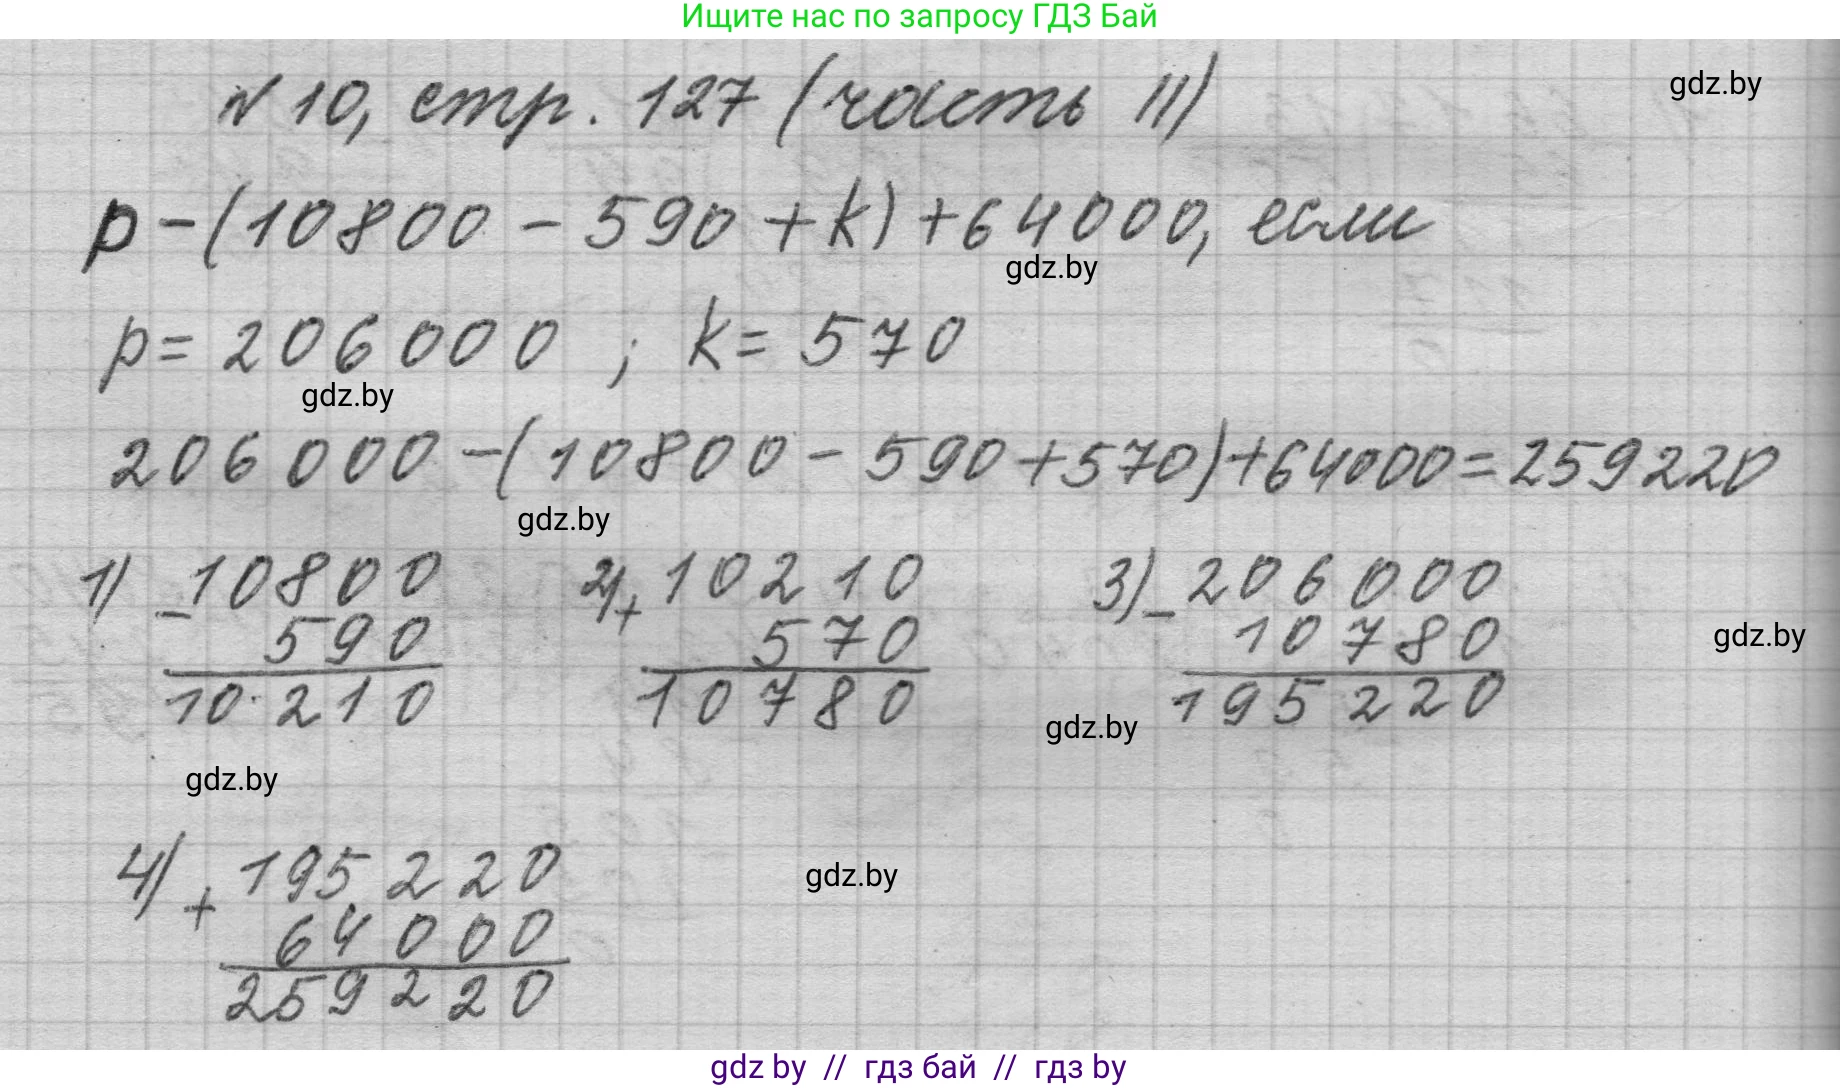 Ищите нас по запросу ГДЗ Бай
N 10, стр. 127 (часть II)
gdz.by
p - (10800 - 590 + k) + 64000, если
gdz.by
p = 206000 ; k = 570
gdz.by
206000 - (10800 - 590 + 570) + 64000 = 259220
gdz.by
1) - 10800
590
10210
2) + 10210
570
10780
3) - 206000
10780
195220
gdz.by
gdz.by
gdz.by
4) + 195220
64000
259220
gdz.by
gdz by // гдз бай // гдз by